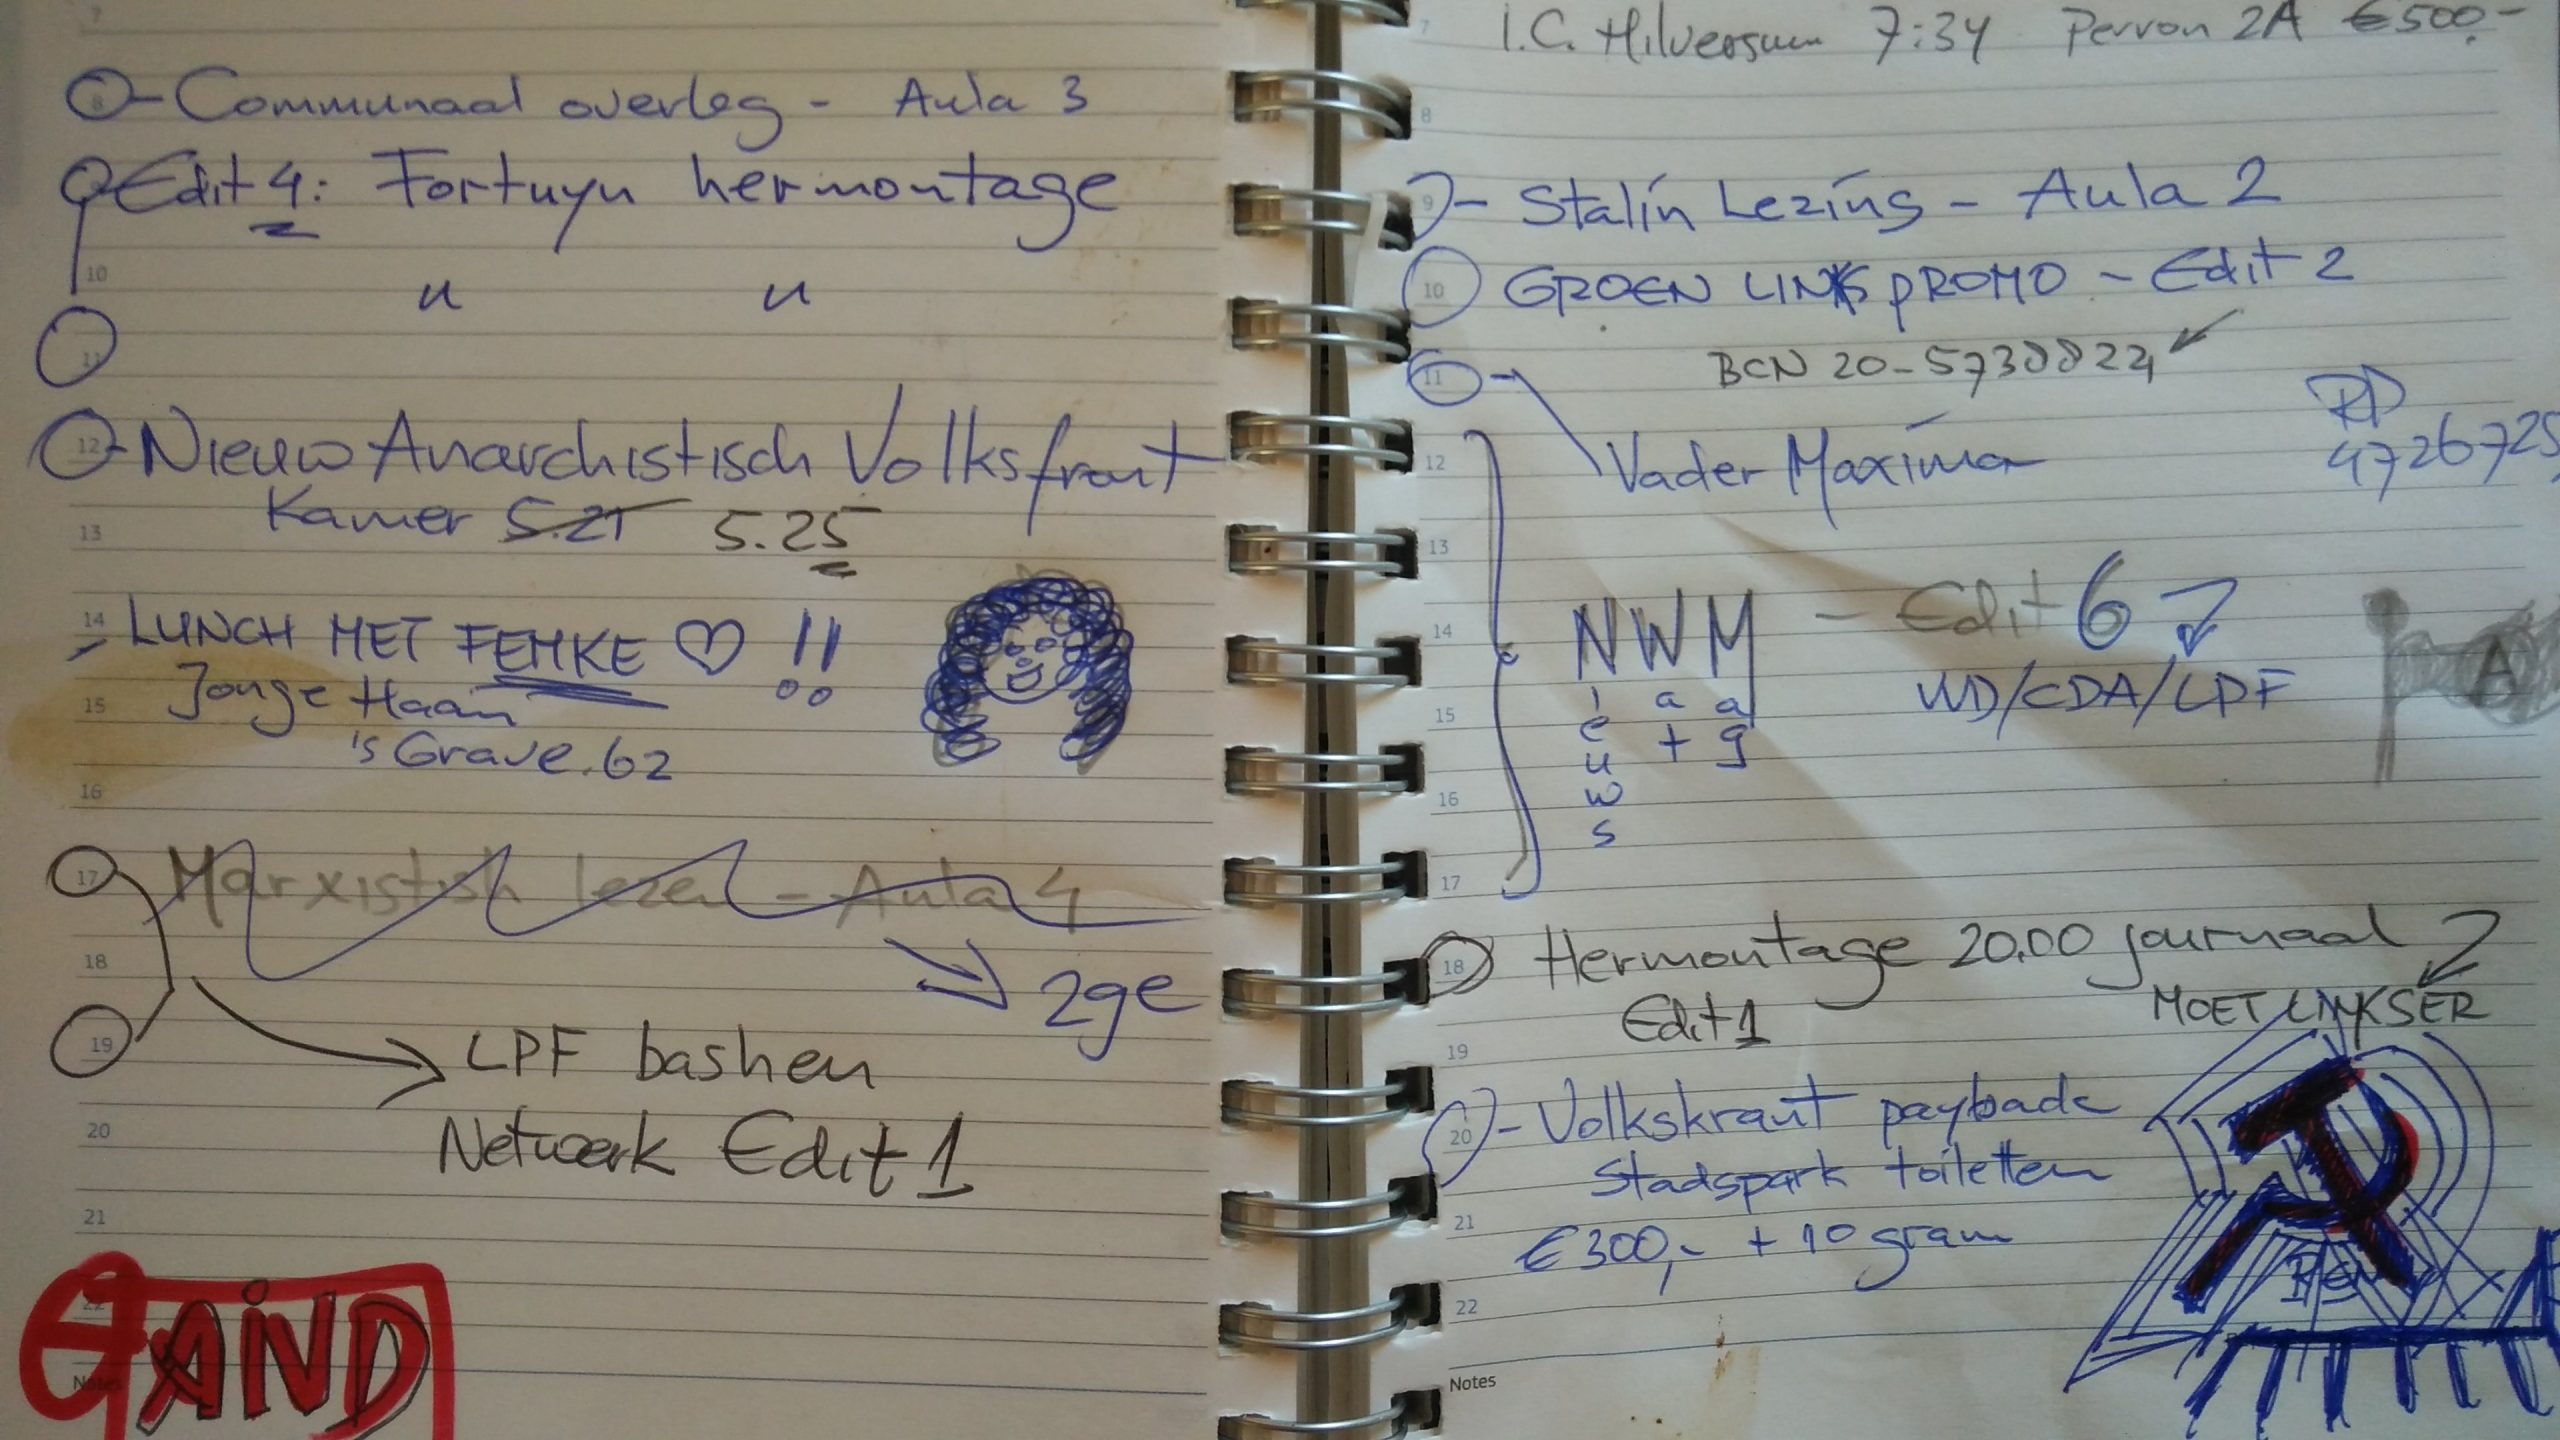 7
8 - Communaal overleg - Aula 3
Edit 4: Fortuyn hermontage
10
" "
11
12 - Nieuw Anarchistisch Volksfront
Kamer 5.21 5.25
13
14 LUNCH MET FEMKE ♡ !!
Jonge Haan
15
's Grave. 62
16
17 Marxistish lezen - Aula 4
18
→ 2ge
19
LPF bashen
20
Netwerk Edit 1
21
22
Notes
AIVD
I.C. Hilversum 7:34 Perron 2A €500,-
7
8
9 - Stalin Lezing - Aula 2
10 GROEN LINKS PROMO - Edit 2
BCN 20-5738822
11 -
RD
4726725
12
Vader Maxima
13
14
NWM - Edit 6
Nieuws
Wat
Maag
VVD/CDA/LPF
A
15
16
17
18 Hermontage 20.00 journaal
Edit 1
MOET LINKSER
19
20 - Volkskrant payback
Stadspark toiletten
21
€300,- + 10 gram
22
Notes